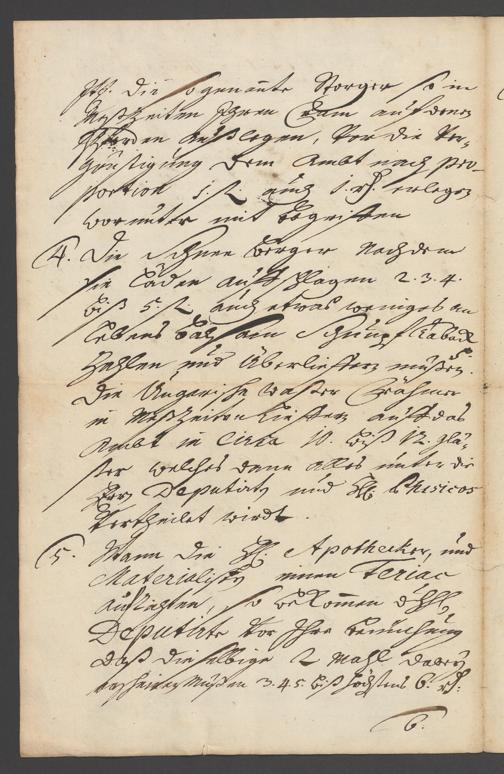 die sogenante Storger so in
Meßzeiten Ihren Cram auf denen
Pferden außlegen, vor die Ver-
günstigung dem Ambt nach pro-
portion auch 1 rh. erlegen
worunter mit begriffen
4. Die Schnee Berger nachdem
sie Läden aufschlagen 2. 3. 4.
biß 5. fl. auch etwas weniges an
Lebens Schnupf Taback
Zahlen und überlieffern müßen.
Die Ungarische waßer Crähmer
in Meßzeiten lieffern auff das
Ambt in Circa 10. biß 12. glä-
ßer welches dann alles unter die
Herrn Deputirte und HH. Phisicos
vertheilet wirdt.
5. Wann die HH. Apothecker, und
Materialisten einen Teriac
außsetzten, so bekommen d. HH.
Deputirte vor Ihre bemühung
daß dieselbige 2 mahl dabey
erscheinen müßen 3. 4. 5. biß höchstens 6. rh.
6.